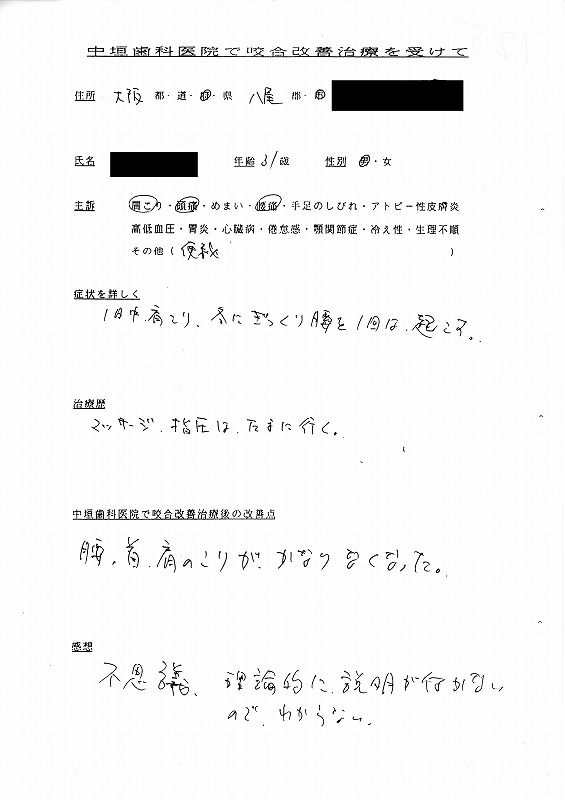 中垣歯科医院で咬合改善治療を受けて
住所 大阪 都・道・府・県 八尾 郡・市
氏名 年齢 31歳 性別 男・女
主訴 肩こり・頭痛・めまい・腰痛・手足のしびれ・アトピー性皮膚炎
高低血圧・胃炎・心臓病・倦怠感・顎関節症・冷え性・生理不順
その他（便秘 ）
症状を詳しく
1日中、肩こり、冬にぎっくり腰を1回は、起こす。
治療歴
マッサージ、指圧は、たまに行く。
中垣歯科医院で咬合改善治療後の改善点
腰、首、肩のこりが、かなりなくなった。
感想
不思議、理論的に、説明が行かない
ので、わからない。